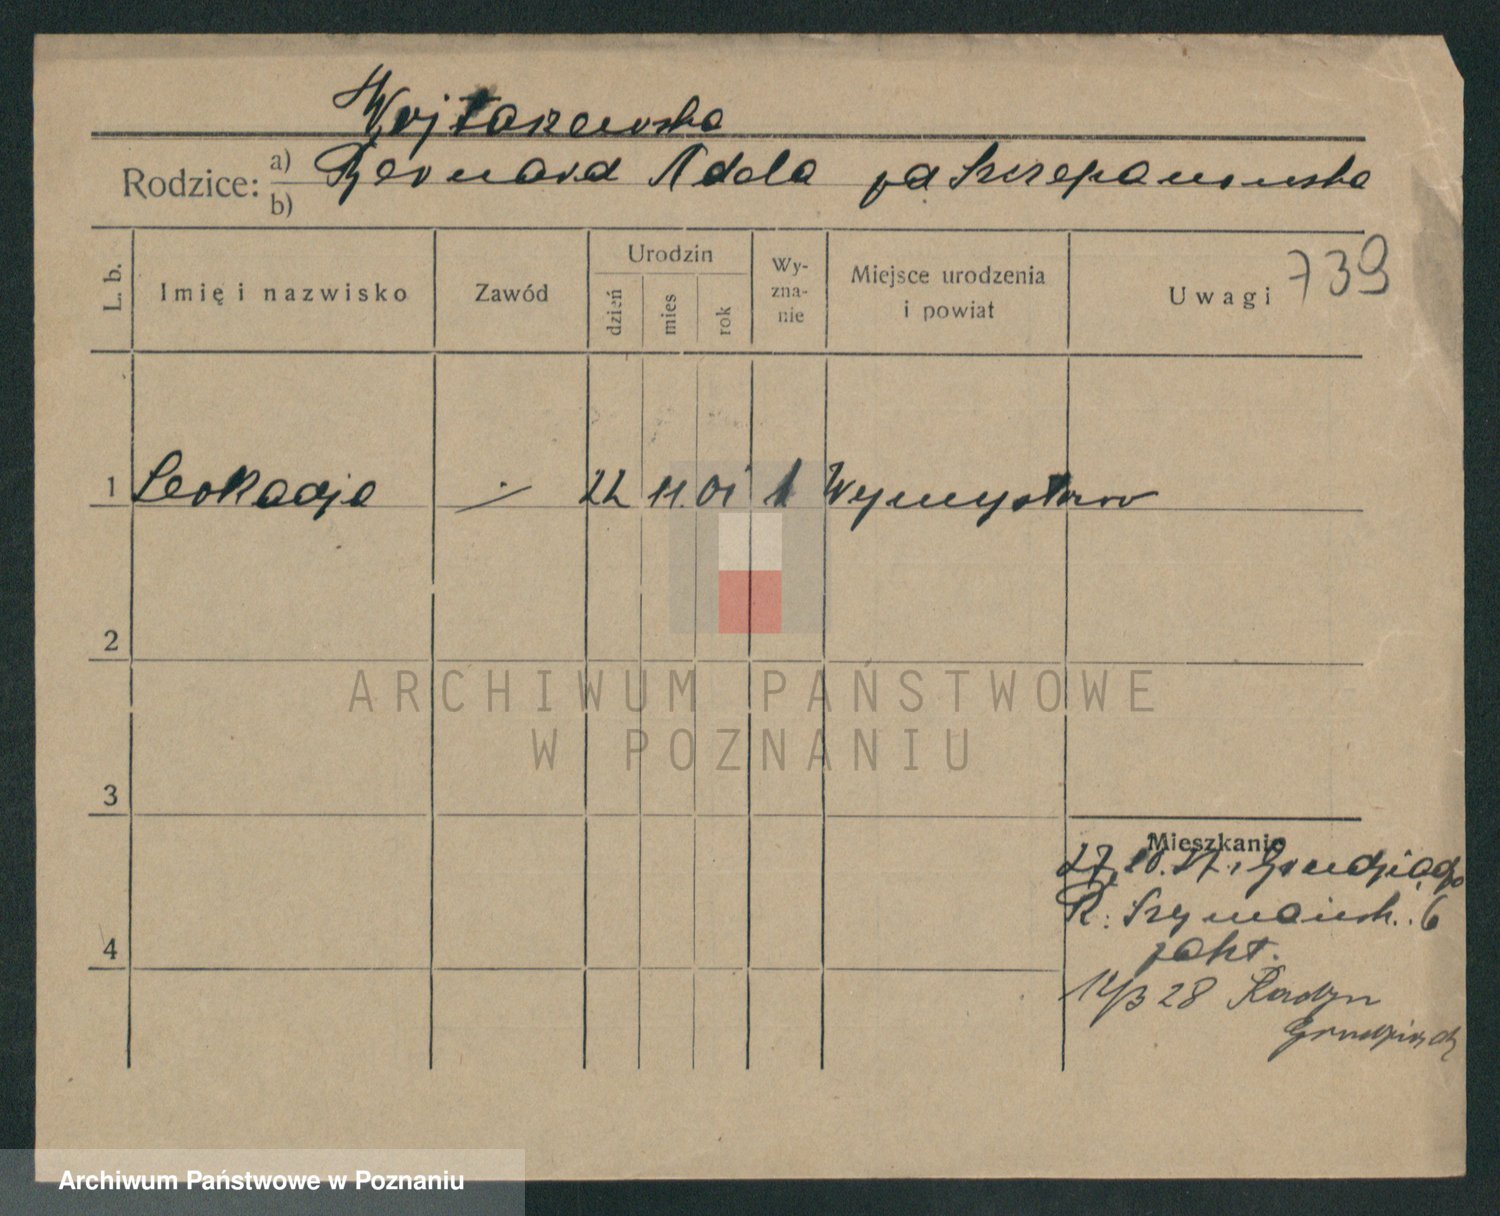 Wojtaszewska
Rodzice: a) Bernard Adela zd Szczepanowska
b)
L. b. Imię i nazwisko Zawód Urodzin dzień mies rok Wy-zna-nie Miejsce urodzenia i powiat Uwagi 739
1 Leokadja ./. 22 11. 01 k Wymysłowo
2
3
4
Mieszkanie
27.10.27. Grudziądz
R. Szymańsk. 6
12/3 28 Radzyn
Grudziądz
ARCHIWUM PAŃSTWOWE
W POZNANIU
Archiwum Państwowe w Poznaniu